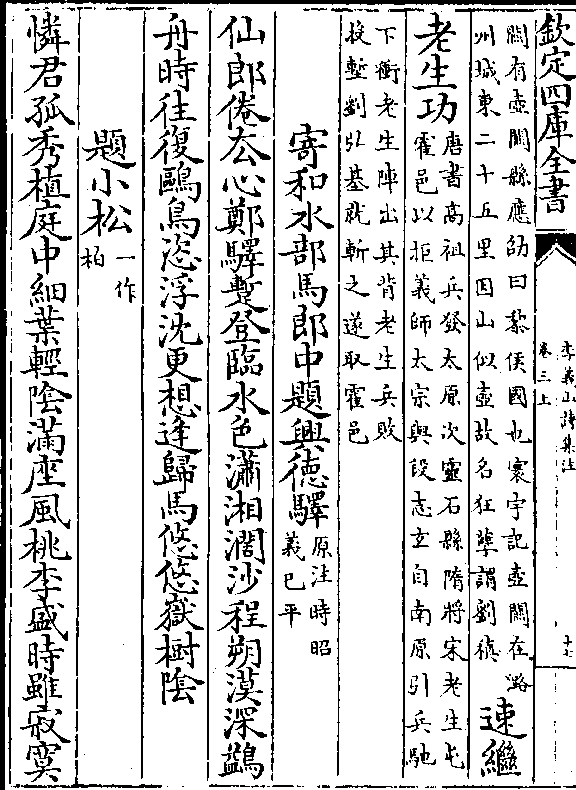 欽定四庫全書
李義山詩集注
卷三上
十七
關有壺關縣應劭曰黎侯國也寰宇記壺關在潞
州城東二十五里因山似壺故名狂孽謂劉稹
速繼
老生功
唐書高祖兵發太原次靈石縣隋將宋老生屯
霍邑以拒義師太宗與段志玄自南原引兵馳
下衝老生陣出其背老生兵敗
投塹劉弘基就斬之遂取霍邑
寄和水部馬郎中題興德驛
原注時昭
義已平
仙郎倦去心鄭驛蹔登臨水色瀟湘濶沙程朔漠深鷁
舟時往復鷗鳥恣浮沈更想逢歸馬悠悠嶽樹陰
題小松
一作
柏
憐君孤秀植庭中細葉輕陰滿座風桃李盛時雖寂寞